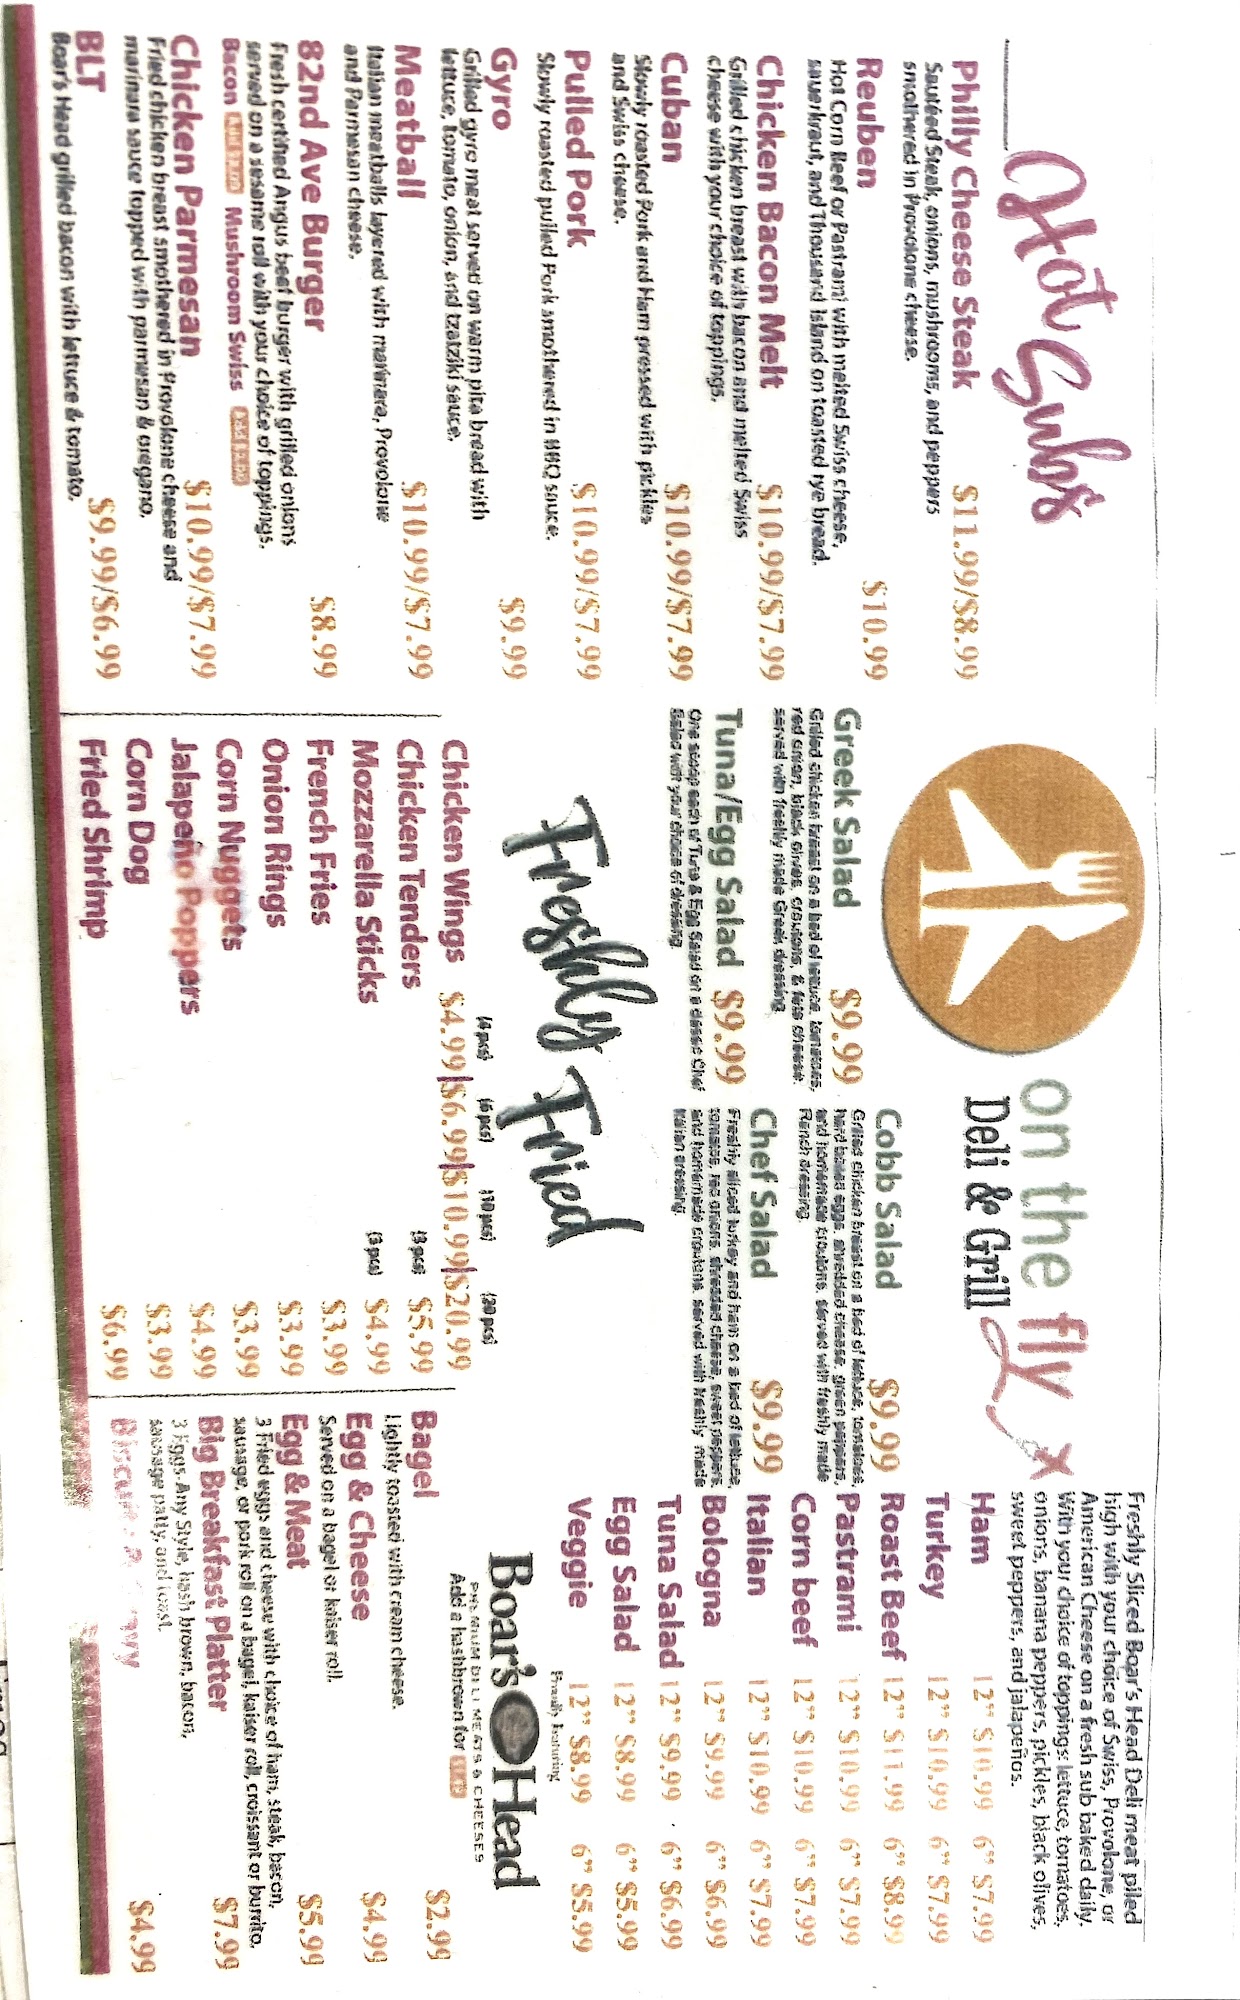 Hot Subs
Philly Cheese Steak $11.99/$8.99
Sautéed Steak, onions, mushrooms, and peppers
smothered in Provolone cheese.
Reuben $10.99
Hot Corn Beef or Pastrami with melted Swiss cheese,
sauerkraut, and Thousand Island on toasted rye bread.
Chicken Bacon Melt $10.99/$7.99
Grilled chicken breast with bacon and melted Swiss
cheese with your choice of toppings.
Cuban $10.99/$7.99
Slowly roasted Pork and Ham pressed with pickles
and Swiss cheese.
Pulled Pork $10.99/$7.99
Slowly roasted pulled Pork smothered in BBQ sauce.
Gyro $9.99
Grilled gyro meat served on warm pita bread with
lettuce, tomato, onion, and tzatziki sauce.
Meatball $10.99/$7.99
Italian meatballs layered with marinara, Provolone
and Parmesan cheese.
82nd Ave Burger $8.99
Fresh certified Angus beef burger with grilled onions
served on a sesame roll with your choice of toppings.
Bacon Mushroom Swiss
Chicken Parmesan $10.99/$7.99
Fried chicken breast smothered in Provolone cheese and
marinara sauce topped with parmesan & oregano.
BLT $9.99/$6.99
Boar's Head grilled bacon with lettuce & tomato.
on the fly
Deli & Grill
Greek Salad $9.99
Grilled chicken breast on a bed of lettuce, tomatoes,
red onion, black olives, croutons, & feta cheese.
served with freshly made Greek dressing
Tuna/Egg Salad $9.99
One scoop each of Tuna & Egg Salad on a classic Chef
Salad with your choice of dressing.
Cobb Salad $9.99
Grilled chicken breast on a bed of lettuce, tomatoes,
hard boiled eggs, shredded cheese, green peppers,
and homemade croutons, served with freshly made
Ranch dressing.
Chef Salad $9.99
Freshly sliced turkey and ham on a bed of lettuce,
tomatoes, red onions, shredded cheese, sweet peppers,
and homemade croutons, served with freshly made
Italian dressing.
Freshly Fried
(4 pcs) (6 pcs) (10 pcs) (20 pcs)
Chicken Wings $4.99|$6.99|$10.99|$20.99
Chicken Tenders (3 pcs) $5.99
Mozzarella Sticks (3 pcs) $4.99
French Fries $3.99
Onion Rings $3.99
Corn Nuggets $3.99
Jalapeño Poppers $4.99
Corn Dog $3.99
Fried Shrimp $6.99
Freshly Sliced Boar's Head Deli meat piled
high with your choice of Swiss, Provolone, or
American Cheese on a fresh sub baked daily.
With your choice of toppings: lettuce, tomatoes,
onions, banana peppers, pickles, black olives,
sweet peppers, and jalapeños.
Ham 12" $10.99 6" $7.99
Turkey 12" $10.99 6" $7.99
Roast Beef 12" $11.99 6" $8.99
Pastrami 12" $10.99 6" $7.99
Corn beef 12" $10.99 6" $7.99
Italian 12" $10.99 6" $7.99
Bologna 12" $9.99 6" $6.99
Tuna Salad 12" $9.99 6" $6.99
Egg Salad 12" $8.99 6" $5.99
Veggie 12" $8.99 6" $5.99
Proudly featuring
Boar's Head
PREMIUM DELI MEATS & CHEESES
Add a hashbrown for
Bagel $2.99
Lightly toasted with cream cheese.
Egg & Cheese $4.99
Served on a bagel or kaiser roll.
Egg & Meat $5.99
3 Fried eggs and cheese with choice of ham, steak, bacon,
sausage, or pork roll on a bagel, kaiser roll, croissant or burrito.
Big Breakfast Platter $7.99
3 Eggs-Any Style, hash brown, bacon,
sausage patty, and toast.
$4.99